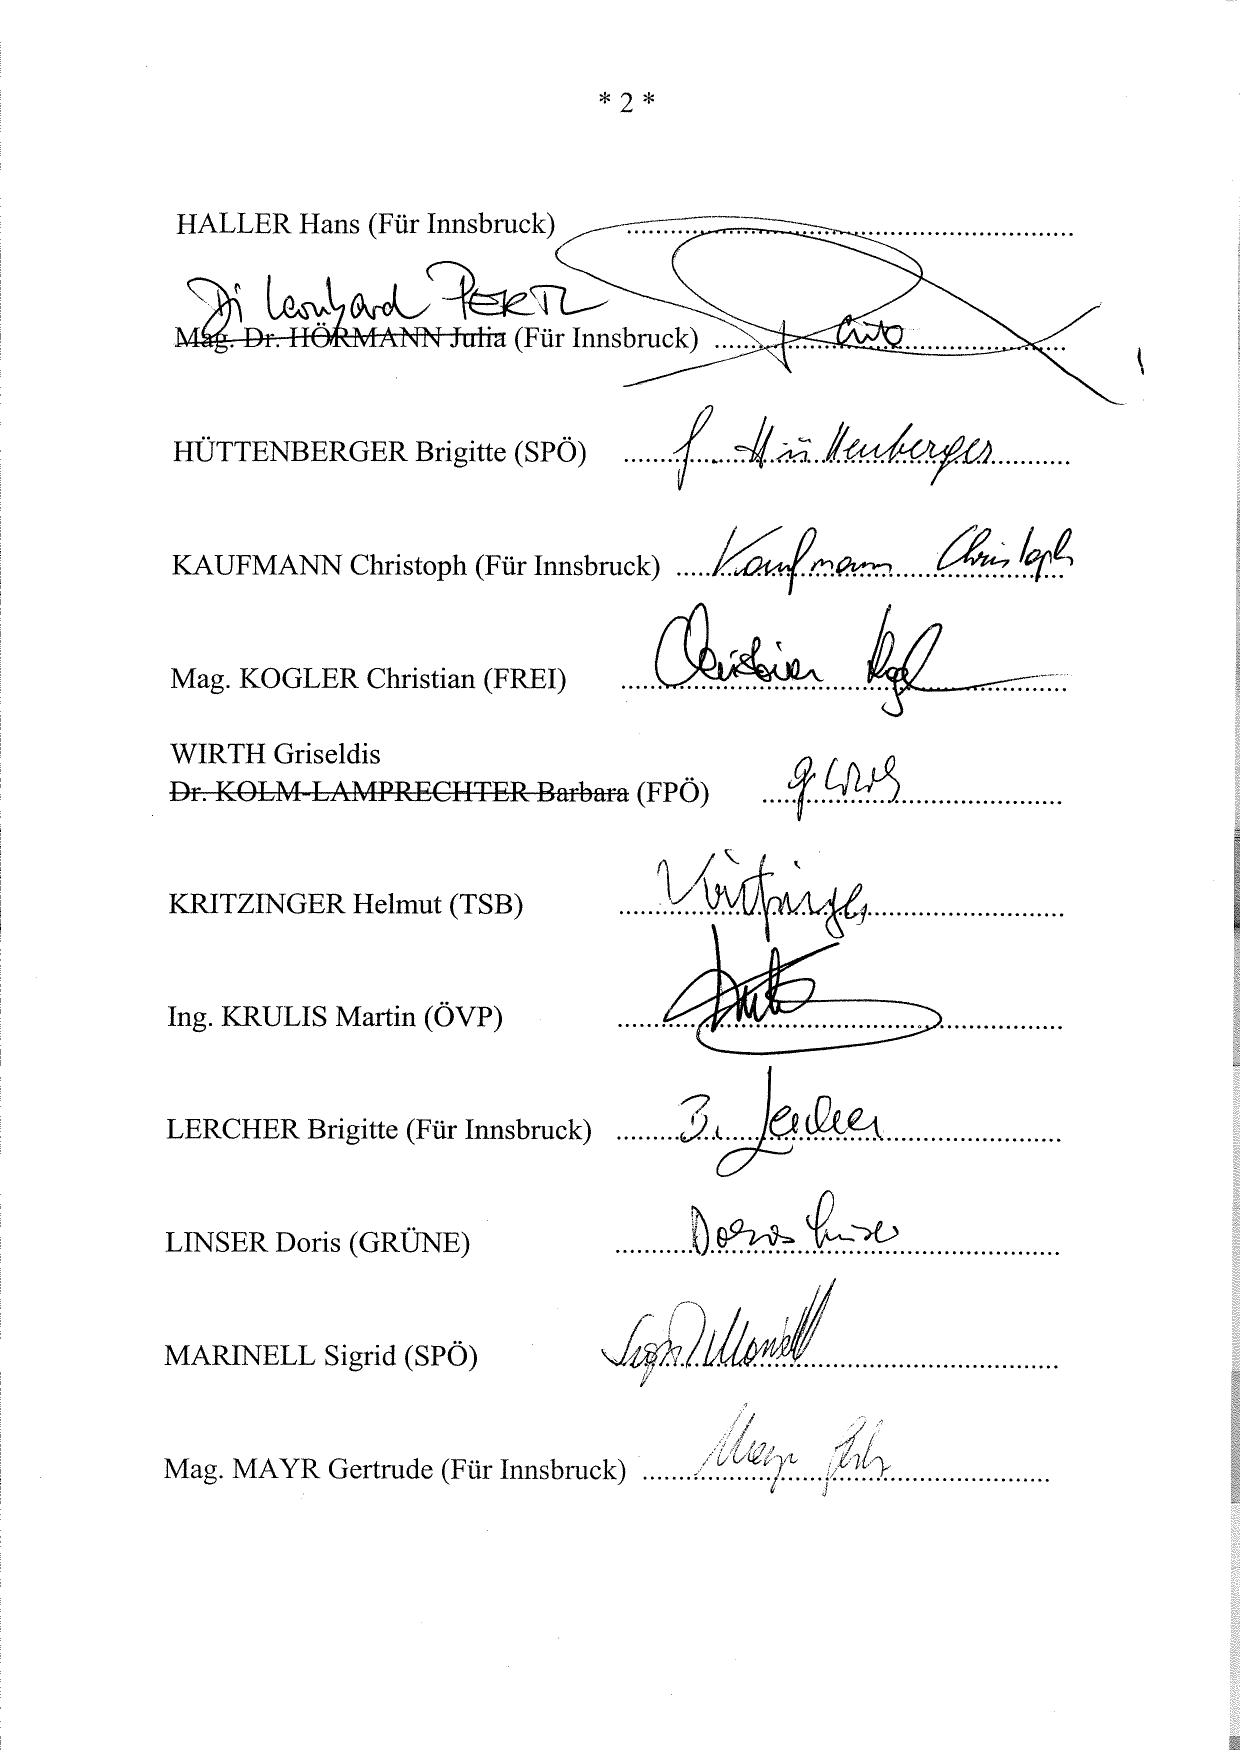 * 2 *
HALLER Hans (Für Innsbruck) ........................................................
DI Leonhard PERTL
Mag. Dr. HÖRMANN Julia (Für Innsbruck) ........................................................
HÜTTENBERGER Brigitte (SPÖ) ........ Hüttenberger ........
KAUFMANN Christoph (Für Innsbruck) ..... Kaufmann Christoph
Mag. KOGLER Christian (FREI) ..... Christian Kogl .....
WIRTH Griseldis
Dr. KOLM-LAMPRECHTER Barbara (FPÖ) ..... G Wirth .....
KRITZINGER Helmut (TSB) ..... Kritzinger .....
Ing. KRULIS Martin (ÖVP) ........................................................
LERCHER Brigitte (Für Innsbruck) ..... B. Lercher .....
LINSER Doris (GRÜNE) ..... Doris Linser .....
MARINELL Sigrid (SPÖ) Sigrid Marinell .....
Mag. MAYR Gertrude (Für Innsbruck) ..... Mayr .....